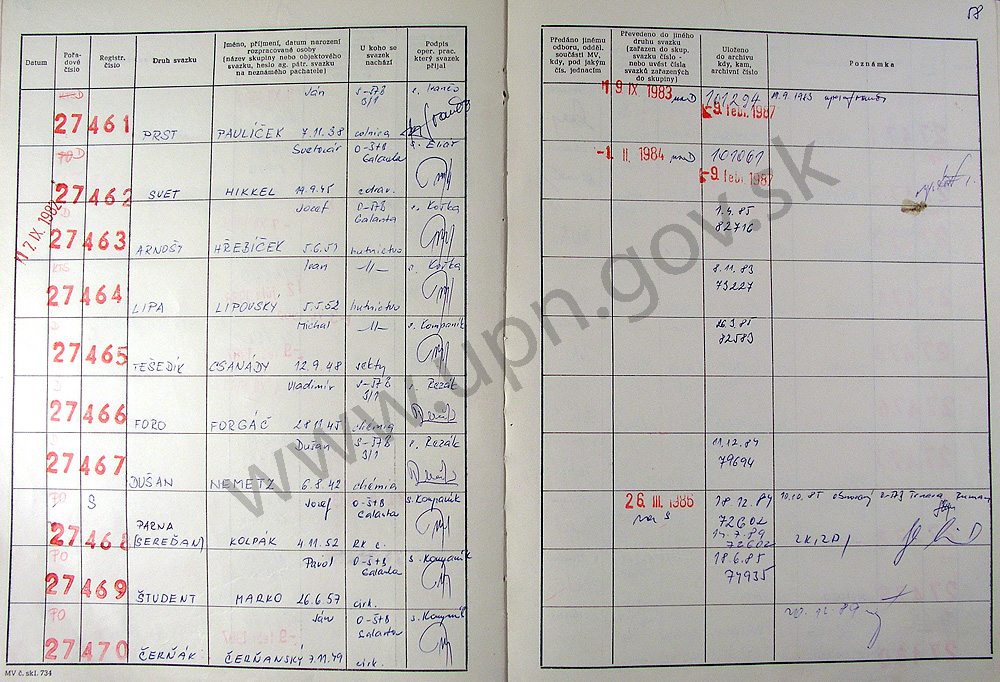 58
Datum
Pořa-
dové
číslo
Registr.
číslo
Druh svazku
Jméno, příjmení, datum narození
rozpracované osoby
(název skupiny nebo objektového
svazku, heslo ag. pátr. svazku
na neznámého pachatele)
U koho se
svazek
nachází
Podpis
oper. prac.
který svazek
přijal
Předáno jinému
odboru, odděl.
součásti MV,
kdy, pod jakým
čís. jednacím
Převedeno do jiného
druhu svazku
(zařazen do skup.
svazku číslo -
nebo uvést čísla
svazků zařazených
do skupiny)
Uloženo
do archivu
kdy, kam,
archivní číslo
Poznámka
17. IX. 1982
27461 PRST Ján PAVLÍČEK 7.11.38 S-ŠTB 3/1 colnica
9 IX 1983 161294 -9. febr. 1987 19.9.1983
27462 SVET Svetozár HIKKEL 19.9.45 O-ŠTB Galanta zdrav.
-1. II. 1984 161061 -9. febr. 1987
27463 ARNOŠT Jozef HŘEBÍČEK 5.6.51 O-ŠTB Galanta hutníctvo s. Kotka
1.4.85 82716
27464 LIPA Ivan LIPOVSKÝ 5.5.52 -//- hutníctvo s. Kotka
8.11.83 73227
27465 TEŠEDÍK Michal CSANÁDY 12.9.48 -//- sekty s. Kompaník
26.3.85 82583
27466 FORO Vladimír FORGÁČ 28.11.45 S-ŠTB 3/1 chémia s. Rezák
27467 DUŠAN Dušan NEMETZ 6.8.42 S-ŠTB 3/1 chémia s. Rezák
11.12.84 79694
PO S
27468 PARNA (SEREĎAN) Jozef KOLPÁK 4.11.52 O-ŠTB Galanta RK c. s. Kompaník
26. III. 1986 18.12.84 72602 72602 10.10.85
PO
27469 ŠTUDENT Pavol MARKO 26.6.57 O-ŠTB Galanta cirk. s. Kompaník
18.6.85 74935
PO
27470 ČERŇÁK Ján ČERŇANSKÝ 7.11.49 O-ŠTB Galanta cirk. s. Kompaník
20.12.89
MV č. skl. 734
www.upn.gov.sk